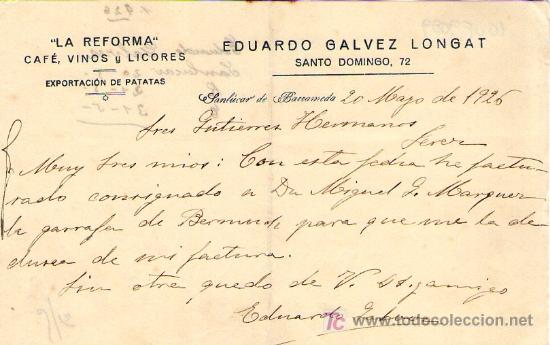 "LA REFORMA"
CAFÉ, VINOS y LICORES
EXPORTACIÓN DE PATATAS
EDUARDO GALVEZ LONGAT
SANTO DOMINGO, 72
Sanlúcar de Barrameda 20 Mayo de 1926
Sres Gutierres Hermanos
Jerez
Muy Sres mios: Con esta fecha he factu
rado consignado a Dn Miguel G. Marquez
la garrafa de para que me la de
de mi factura.
Sin otro quedo de V.
Eduardo Galvez
todocoleccion.net